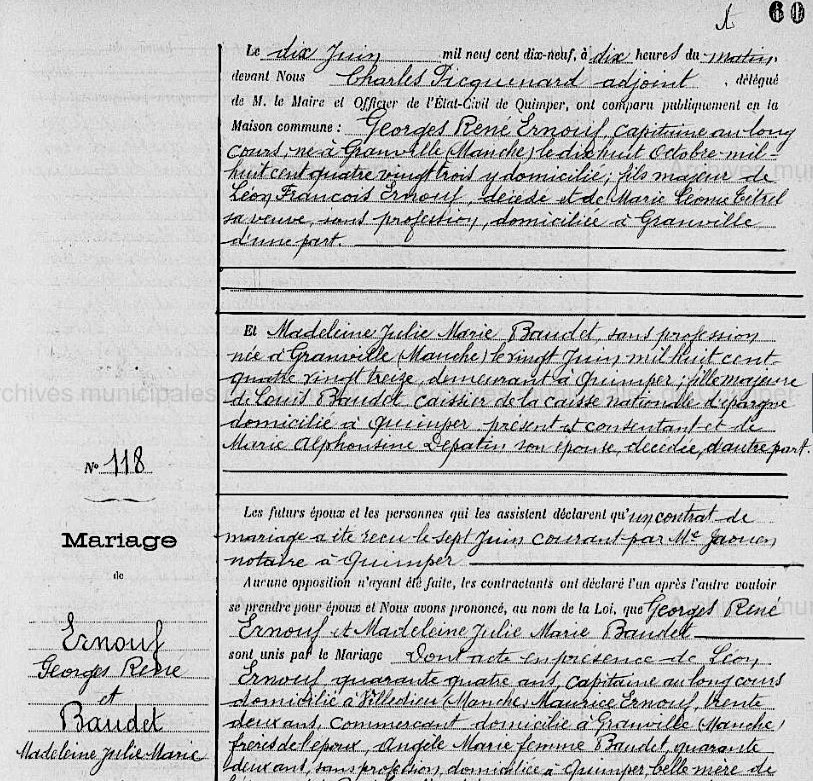 A 60
Le dix Juin mil neuf cent dix-neuf, à dix heures du matin,
devant Nous Charles Picquenard adjoint, délégué
de M. le Maire et Officier de l'État-Civil de Quimper, ont comparu publiquement en la
Maison commune : Georges René Ernouf, capitaine au long
cours, né à Granville (Manche) le dix huit Octobre mil-
huit cent quatre vingt trois y domicilié; fils majeur de
Léon François Ernouf, décédé et de Marie Léonie
sa veuve, sans profession, domiciliée à Granville
d'une part.
Et Madeleine Julie Marie Baudet, sans profession
née à Granville (Manche) le vingt Juin mil huit cent-
quatre vingt treize, demeurant à Quimper; fille majeure
de Louis Baudet caissier de la caisse nationale d'épargne
domicilié à Quimper présent et consentant et de
Marie Alphonsine Depatin son épouse, décédée, d'autre part.
Les futurs époux et les personnes qui les assistent déclarent qu'un contrat de
mariage a été reçu le sept Juin courant par Me Jaouen
notaire à Quimper
Aucune opposition n'ayant été faite, les contractants ont déclaré l'un après l'autre vouloir
se prendre pour époux et Nous avons prononcé, au nom de la Loi, que Georges René
Ernouf et Madeleine Julie Marie Baudet
sont unis par le Mariage Dont acte en présence de Léon
Ernouf quarante quatre ans, capitaine au long cours
domicilié à Villedieu (Manche) Maurice Ernouf, trente
deux ans, commerçant domicilié à Granville (Manche)
frères de l'époux, Angèle Marie femme Baudet, quarante
deux ans, sans profession, domiciliée à Quimper, belle mère de
N° 118
Mariage
de
Ernouf
Georges René
et
Baudet
Madeleine Julie Marie